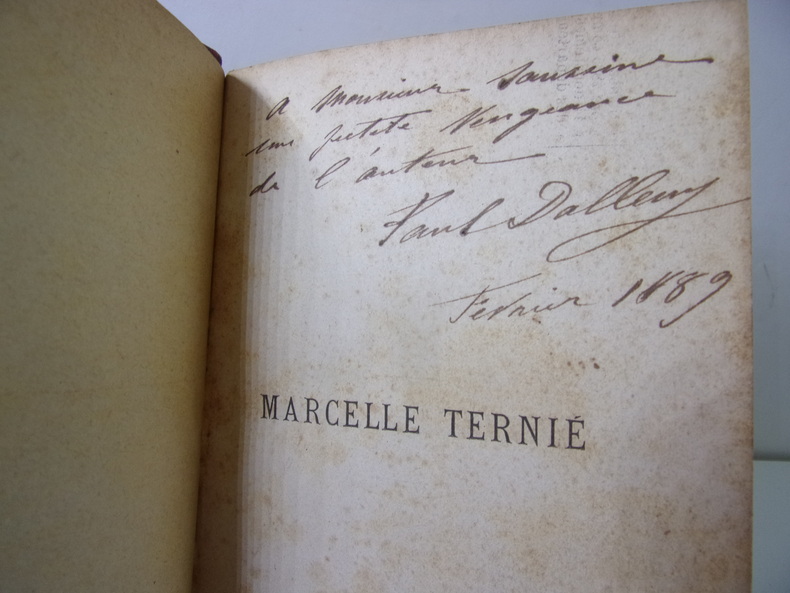 A Monsieur Saussine
une petite Vengeance
de l'auteur
Paul Dalleury
Février 1889
MARCELLE TERNIÉ